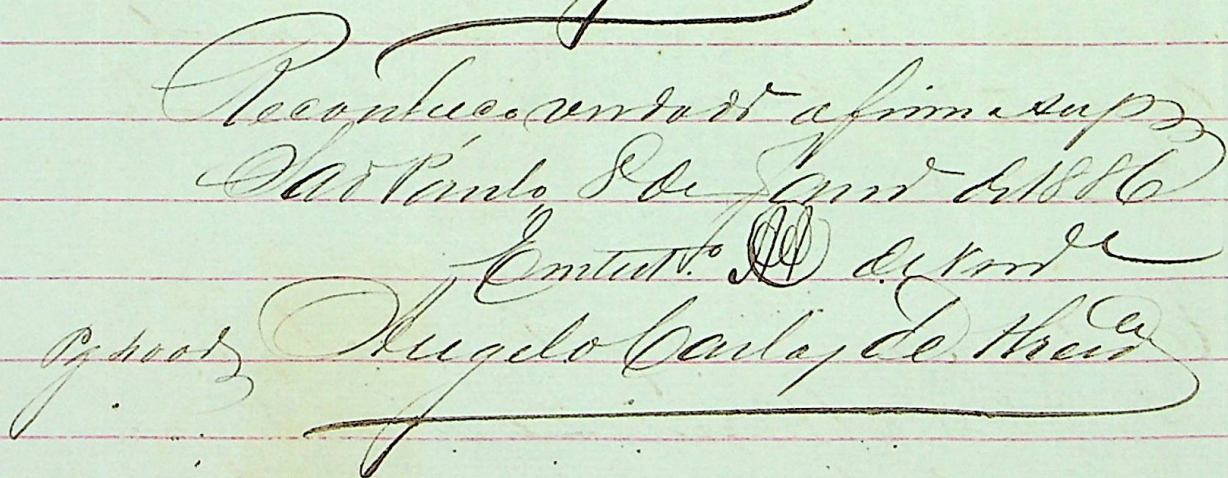 Reconheço verdadr a firma supra
São Paulo 8 de Janr de 1886
Em testo de verde
Angelo Carlos de Abreu